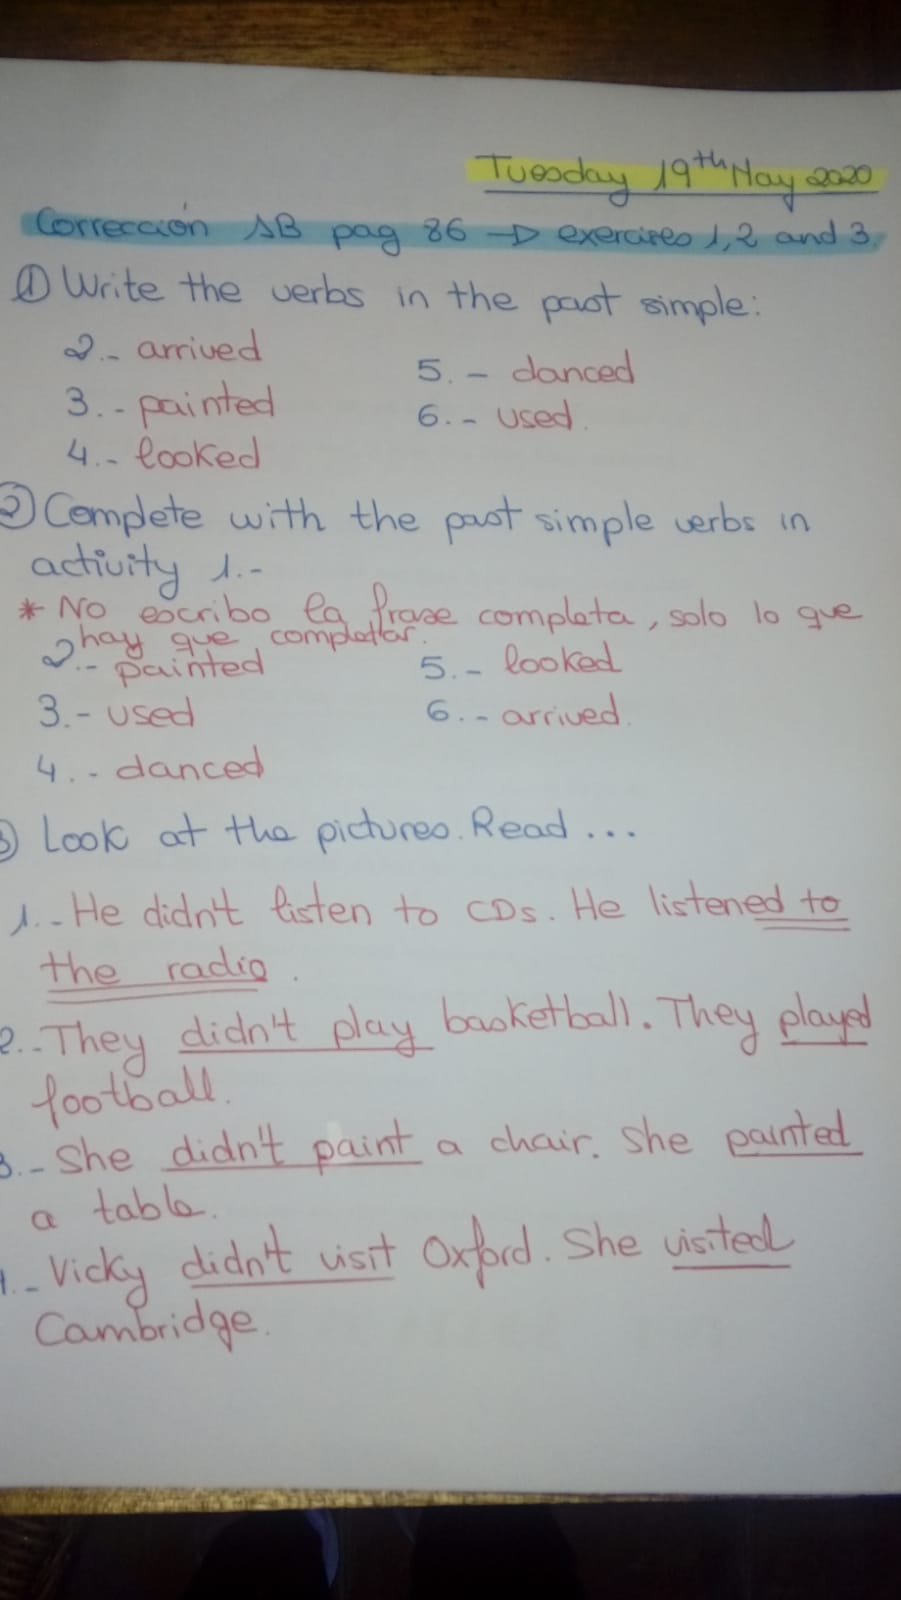 Tuesday 19th May 2020
Corrección AB pag 86 → exercises 1, 2 and 3.
① Write the verbs in the past simple:
2.- arrived
3.- painted
4.- looked
5.- danced
6.- used.
② Complete with the past simple verbs in
activity 1.-
* No escribo la frase completa, solo lo que
hay que completar.
2.- painted
3.- used
4.- danced
5.- looked
6.- arrived.
③ Look at the pictures. Read ...
1.- He didn't listen to CDs. He listened to
the radio.
2.- They didn't play basketball. They played
football.
3.- She didn't paint a chair. She painted
a table.
4.- Vicky didn't visit Oxford. She visited
Cambridge.